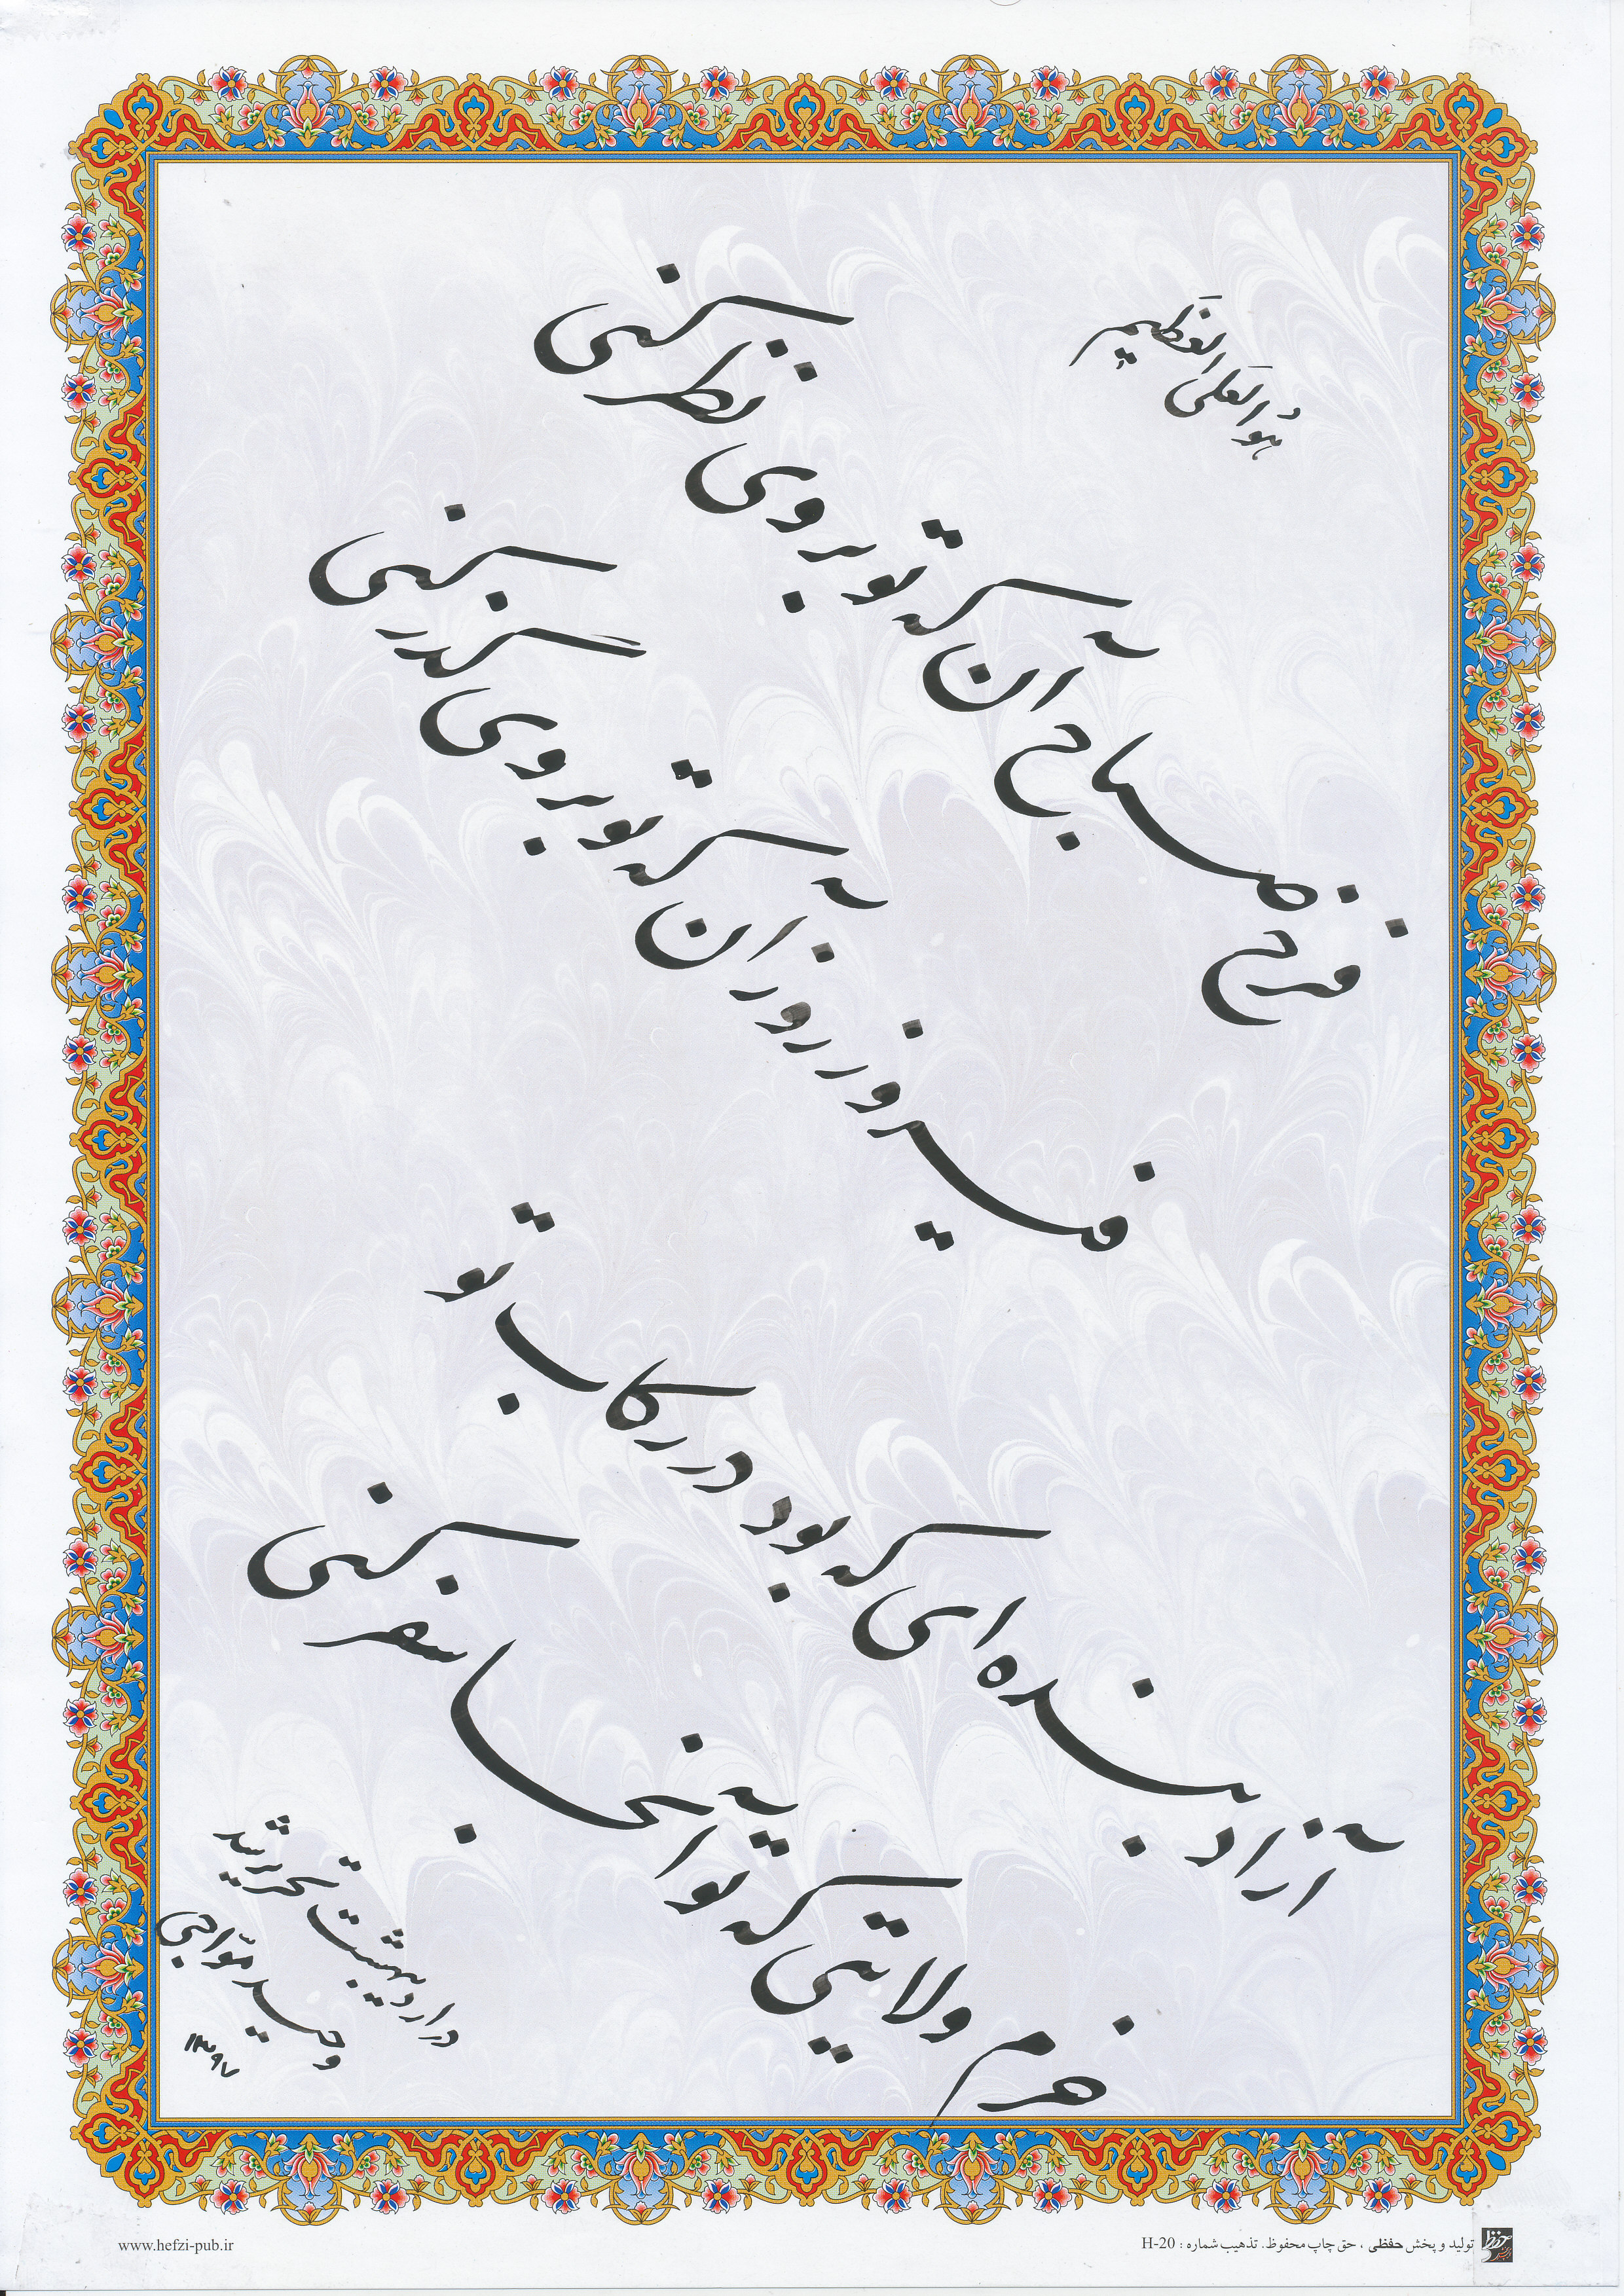 هو العلی العظیم
فرخ صباح آن که تو بروی نظر کنی
فیروز روز آن که تو بروی گذر کنی
آزاد بنده‌ای که بود در رکاب تو
خرم ولایتی که تو آنجا سفر کنی
در اردیبهشت تحریر شد
وحید مواجی
۱۳۹۷
www.hefzi-pub.ir
تولید و پخش حفظی ، حق چاپ محفوظ. تذهیب شماره : H-20